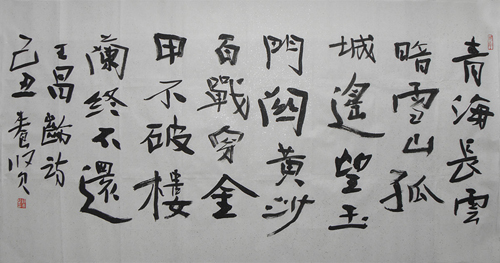 青海長雲
暗雪山孤
城遙望玉
門關黃沙
百戰穿金
甲不破樓
蘭終不還
王昌齡詩
己丑